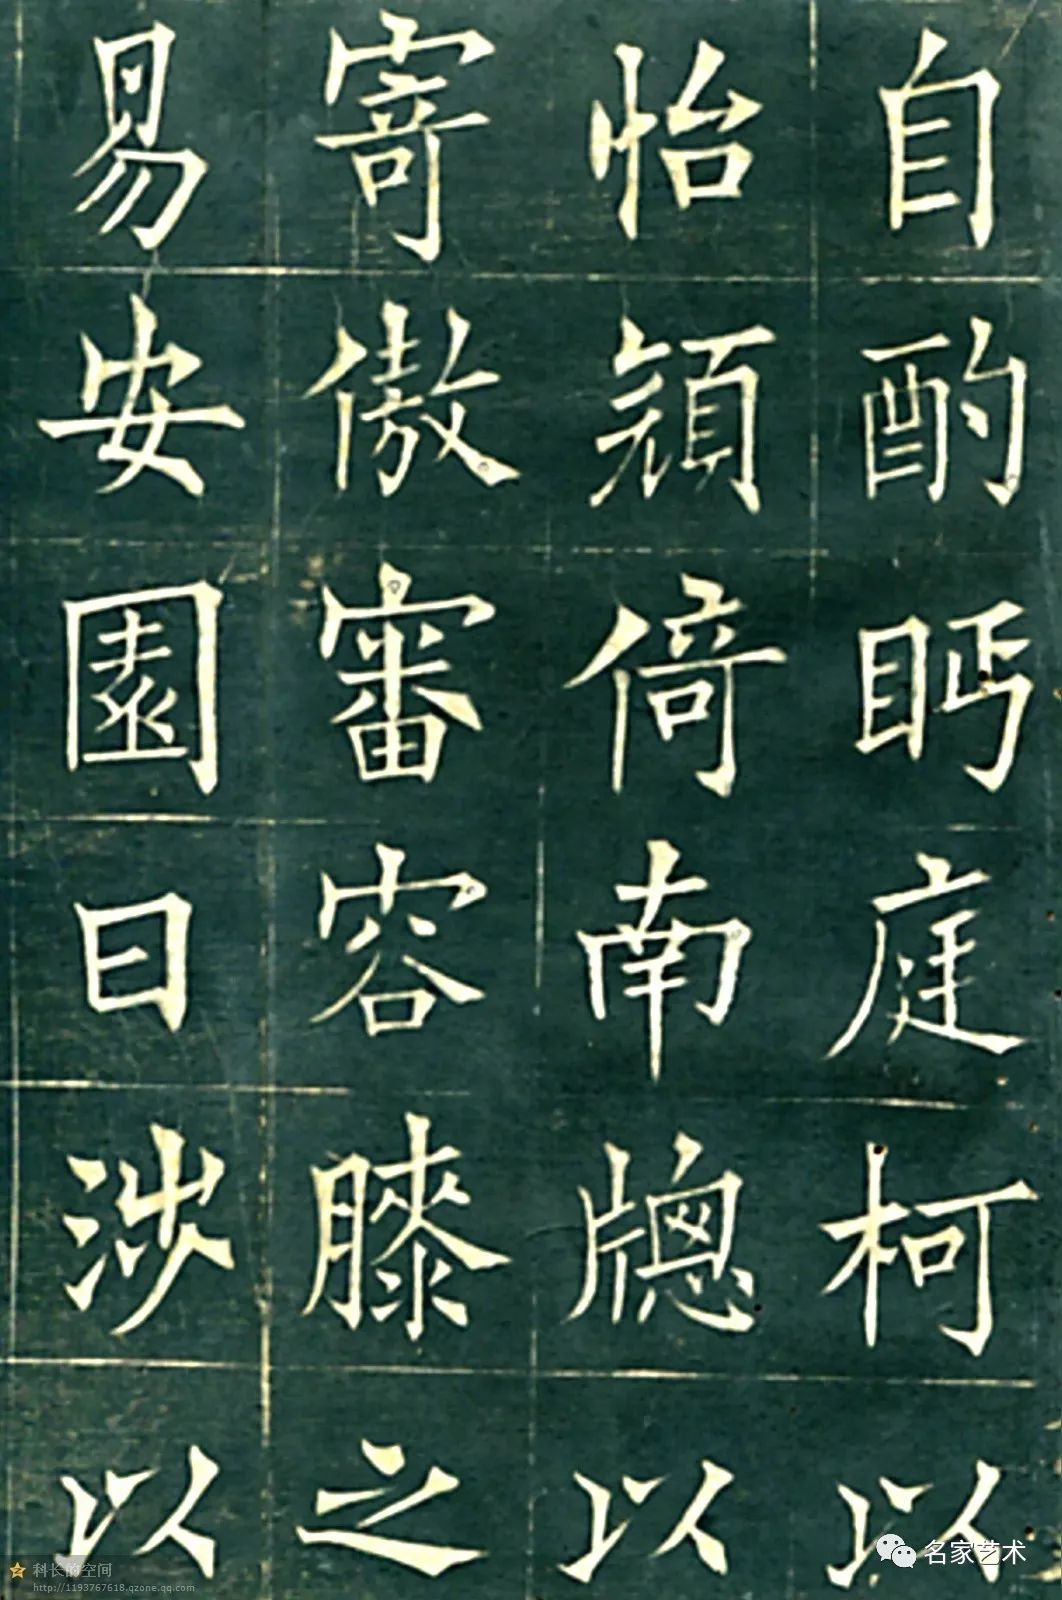 自酌眄庭柯以
怡顔倚南牕以
寄傲審容膝之
易安園日涉以
名家艺术
科长的空间
http://1193767618.qzone.qq.com